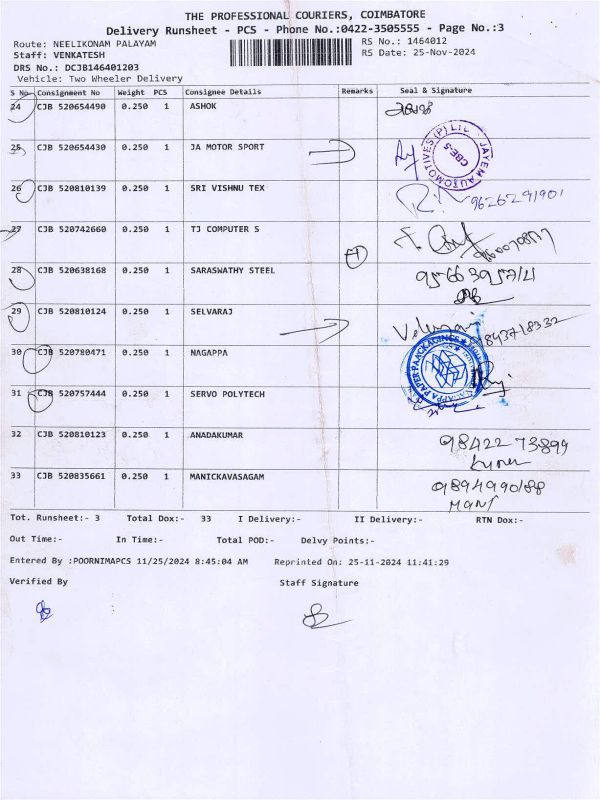 THE PROFESSIONAL COURIERS, COIMBATORE
Delivery Runsheet - PCS - Phone No.:0422-3505555 - Page No.:3
Route: NEELIKONAM PALAYAM RS No.: 1464012
Staff: VENKATESH RS Date: 25-Nov-2024
DRS No.: DCJB146401203
Vehicle: Two Wheeler Delivery
S No Consignment No Weight PCS Consignee Details Remarks Seal & Signature
24 CJB 520654490 0.250 1 ASHOK
25 CJB 520654430 0.250 1 JA MOTOR SPORT
JAYEM AUTOMOTIVES (P) LTD CBE-5
26 CJB 520810139 0.250 1 SRI VISHNU TEX
9626291901
27 CJB 520742660 0.250 1 TJ COMPUTER S
28 CJB 520638168 0.250 1 SARASWATHY STEEL
29 CJB 520810124 0.250 1 SELVARAJ
30 CJB 520780471 0.250 1 NAGAPPA
31 CJB 520757444 0.250 1 SERVO POLYTECH
32 CJB 520810123 0.250 1 ANADAKUMAR 98422 73899
33 CJB 520835661 0.250 1 MANICKAVASAGAM
MANI
Tot. Runsheet:- 3 Total Dox:- 33 I Delivery:- II Delivery:- RTN Dox:-
Out Time:- In Time:- Total POD:- Delvy Points:-
Entered By :POORNIMAPCS 11/25/2024 8:45:04 AM Reprinted On: 25-11-2024 11:41:29
Verified By Staff Signature